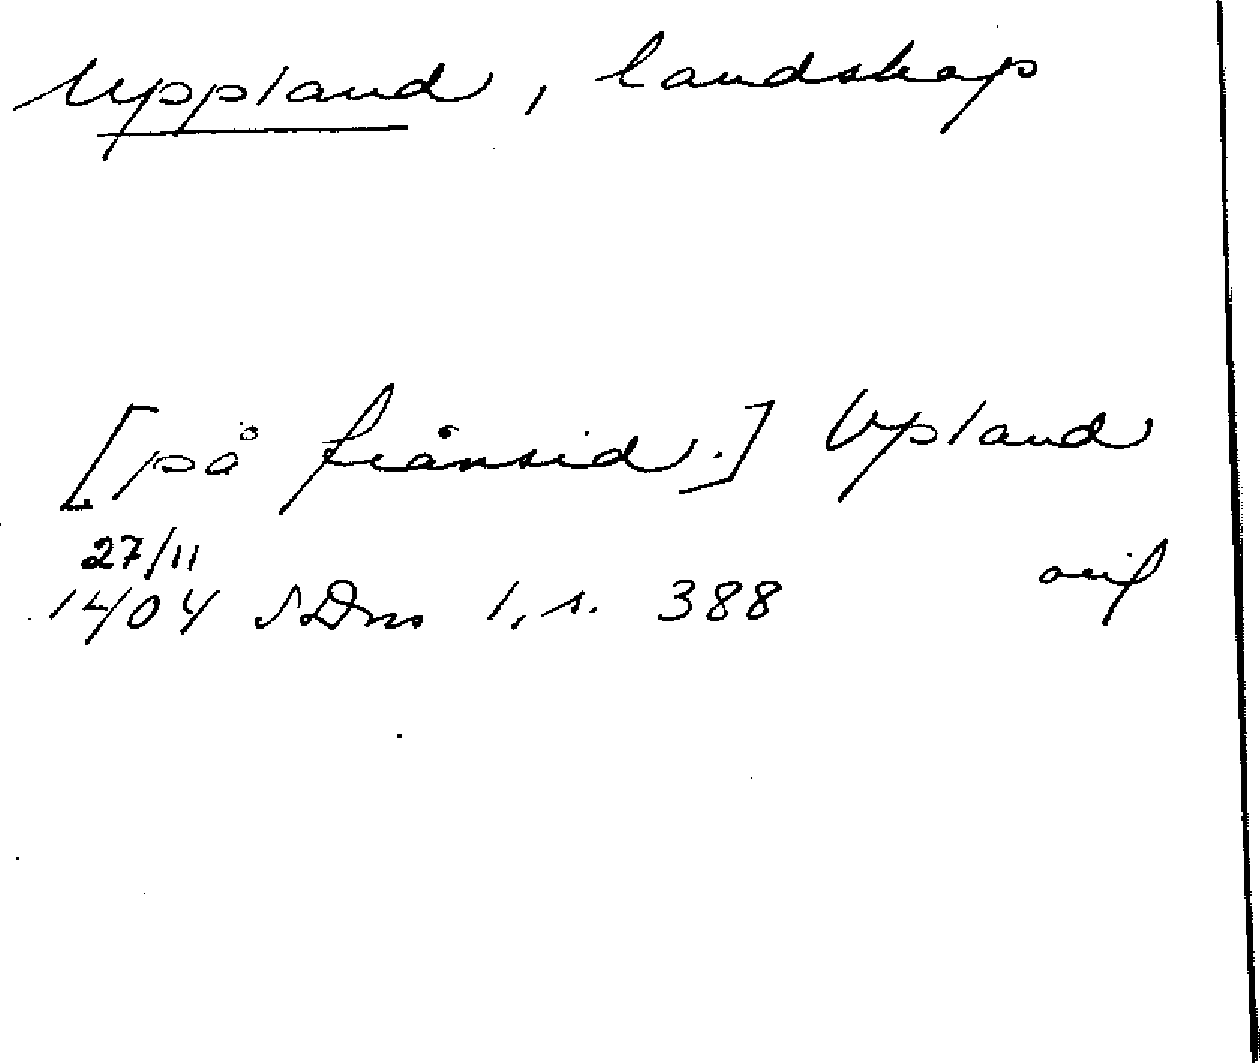 Uppland, landskap
[på frånsid.] Vpland
27/11
1404 SDns 1, s. 388 orig